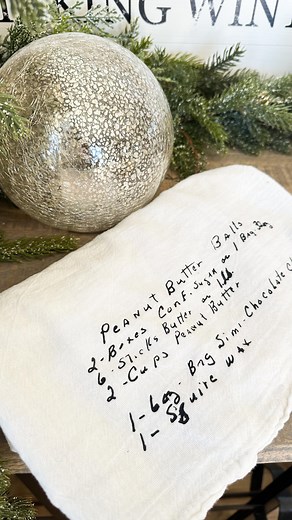 KING WINT
PEANUT BUTTER BALLS
2-Boxes Conf. Sugar or 1 Bag
6-Sticks Butter or 1 lb
2-Cups Peanut Butter
1-6oz. Bag Simi-Chocolate
1-Squire wax